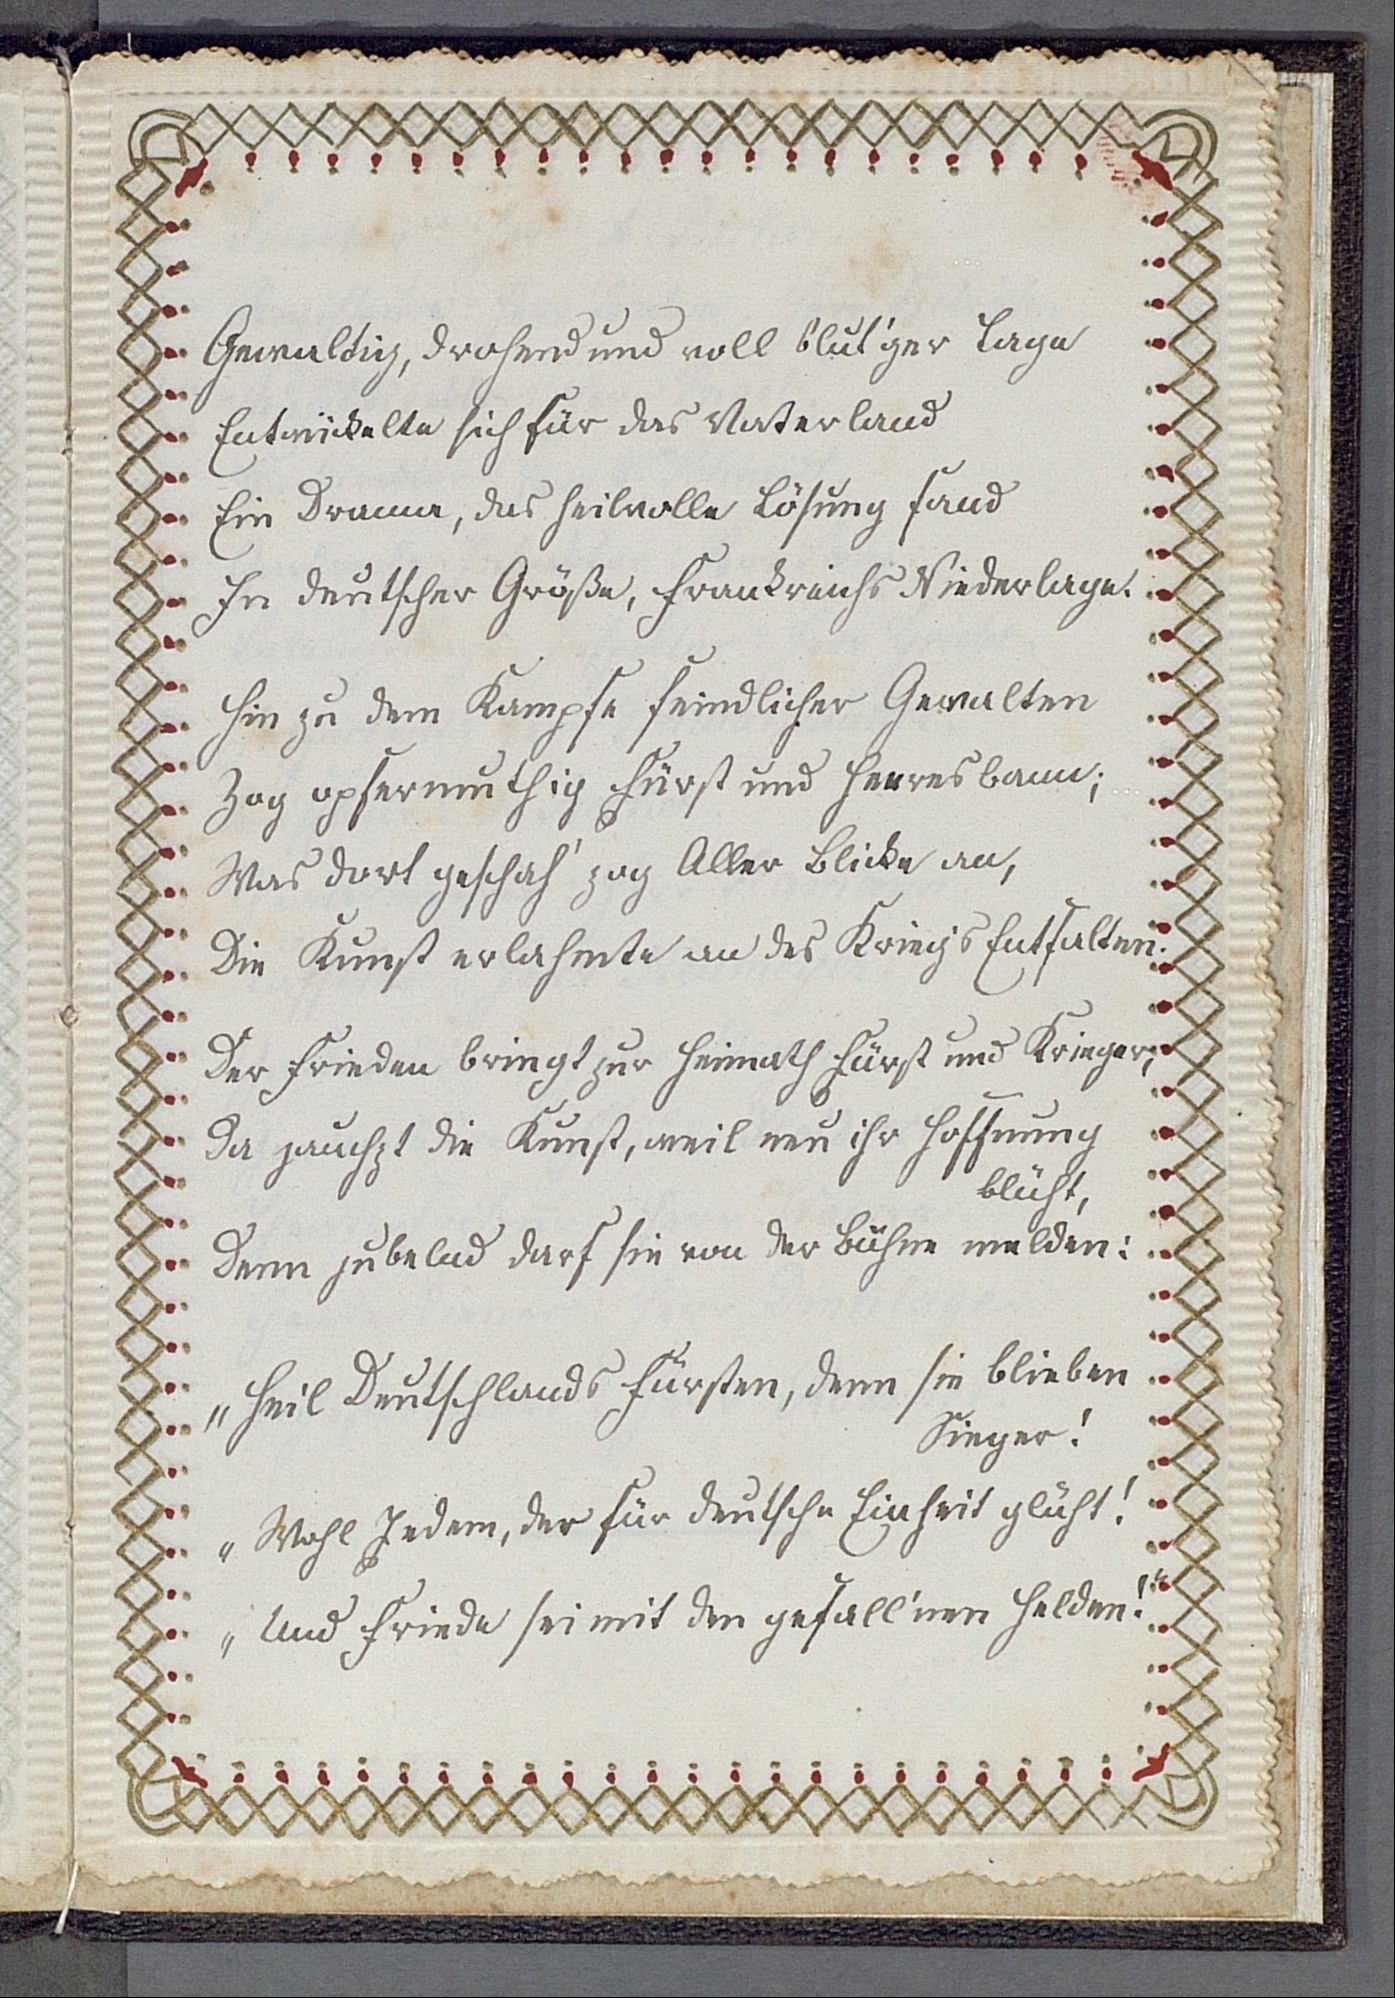 Gewaltig, drohend und voll blut'ger Tage
Entwickelte sich für das Vaterland
Ein Drama, das heilvolle Lösung fand
In deutscher Größe, Frankreichs Niederlage.
Hin zu dem Kampfe feindlicher Gewalten
Zog opfermuthig Fürst und Heeresbann;
Was dort geschah' zog Aller Blicke an,
Die Kunst erlahmte an des Krieg's Entfalten.
Der Frieden bringt zur Heimath Fürst und Krieger,
Da jauchzt die Kunst, weil neu ihr Hoffnung
blüht,
Denn jubelnd darf sie von der Bühne melden:
„Heil Deutschlands Fürsten, denn sie blieben
Sieger!
„Wohl Jedem, der für deutsche Einheit glüht!
„Und Friede sei mit den gefall'nen Helden!"